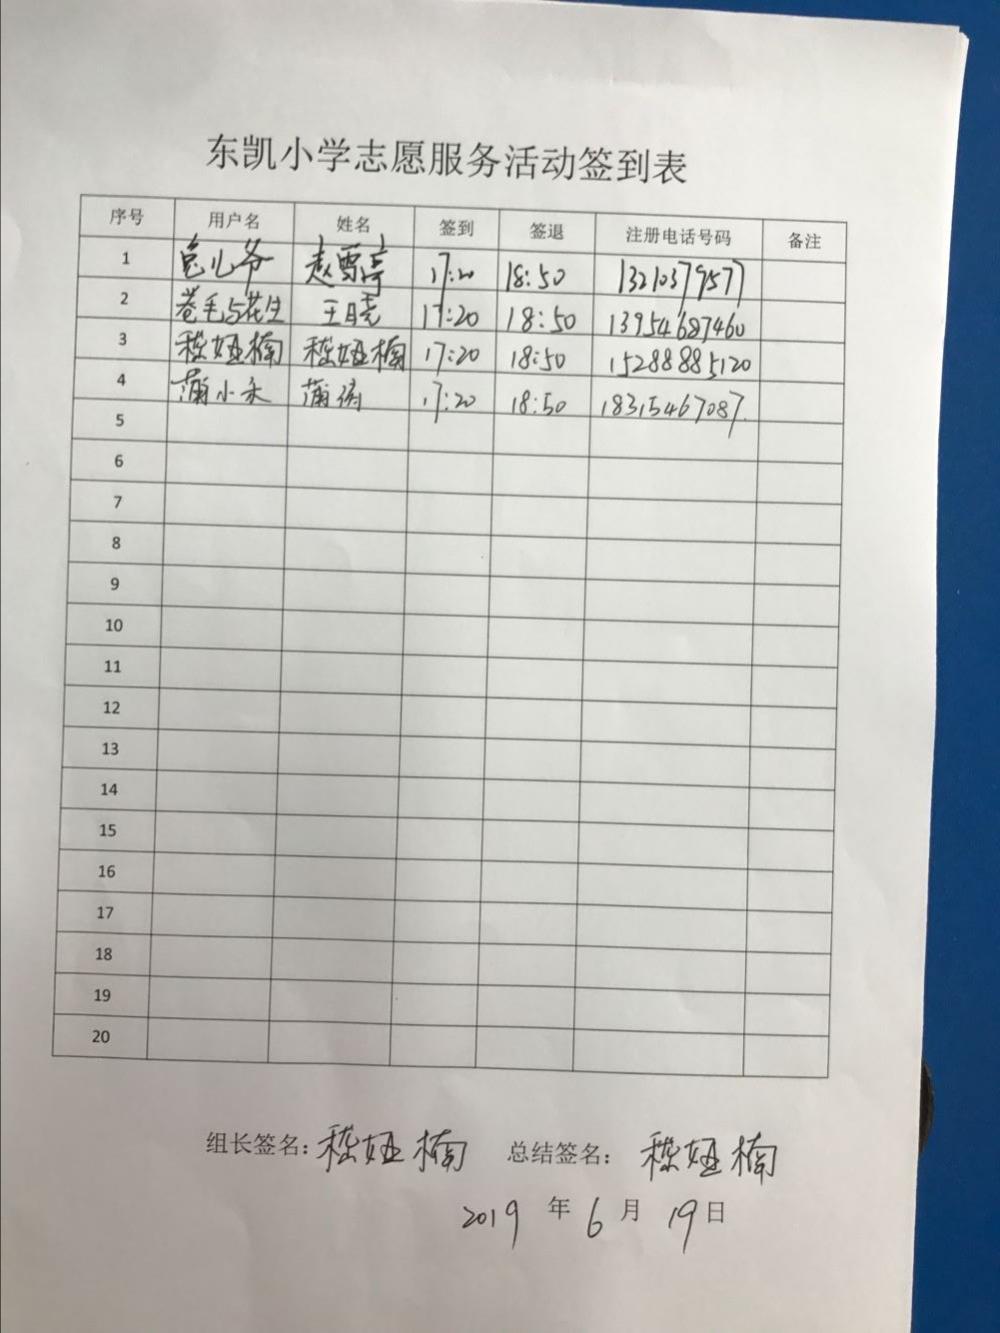 东凯小学志愿服务活动签到表
序号 用户名 姓名 签到 签退 注册电话号码 备注
1 兔儿爷 赵雪亭 17:20 18:50 13210379577
2 卷毛与花生 王晓 17:20 18:50 13954687460
3 嵇娅楠 嵇娅楠 17:20 18:50 15288885120
4 蒲小禾 蒲 17:20 18:50 18315467087
5
6
7
8
9
10
11
12
13
14
15
16
17
18
19
20
组长签名: 嵇娅楠 总结签名: 嵇娅楠
2019 年 6 月 19 日